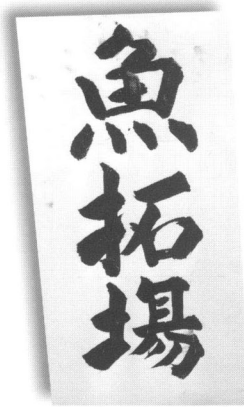 魚拓場